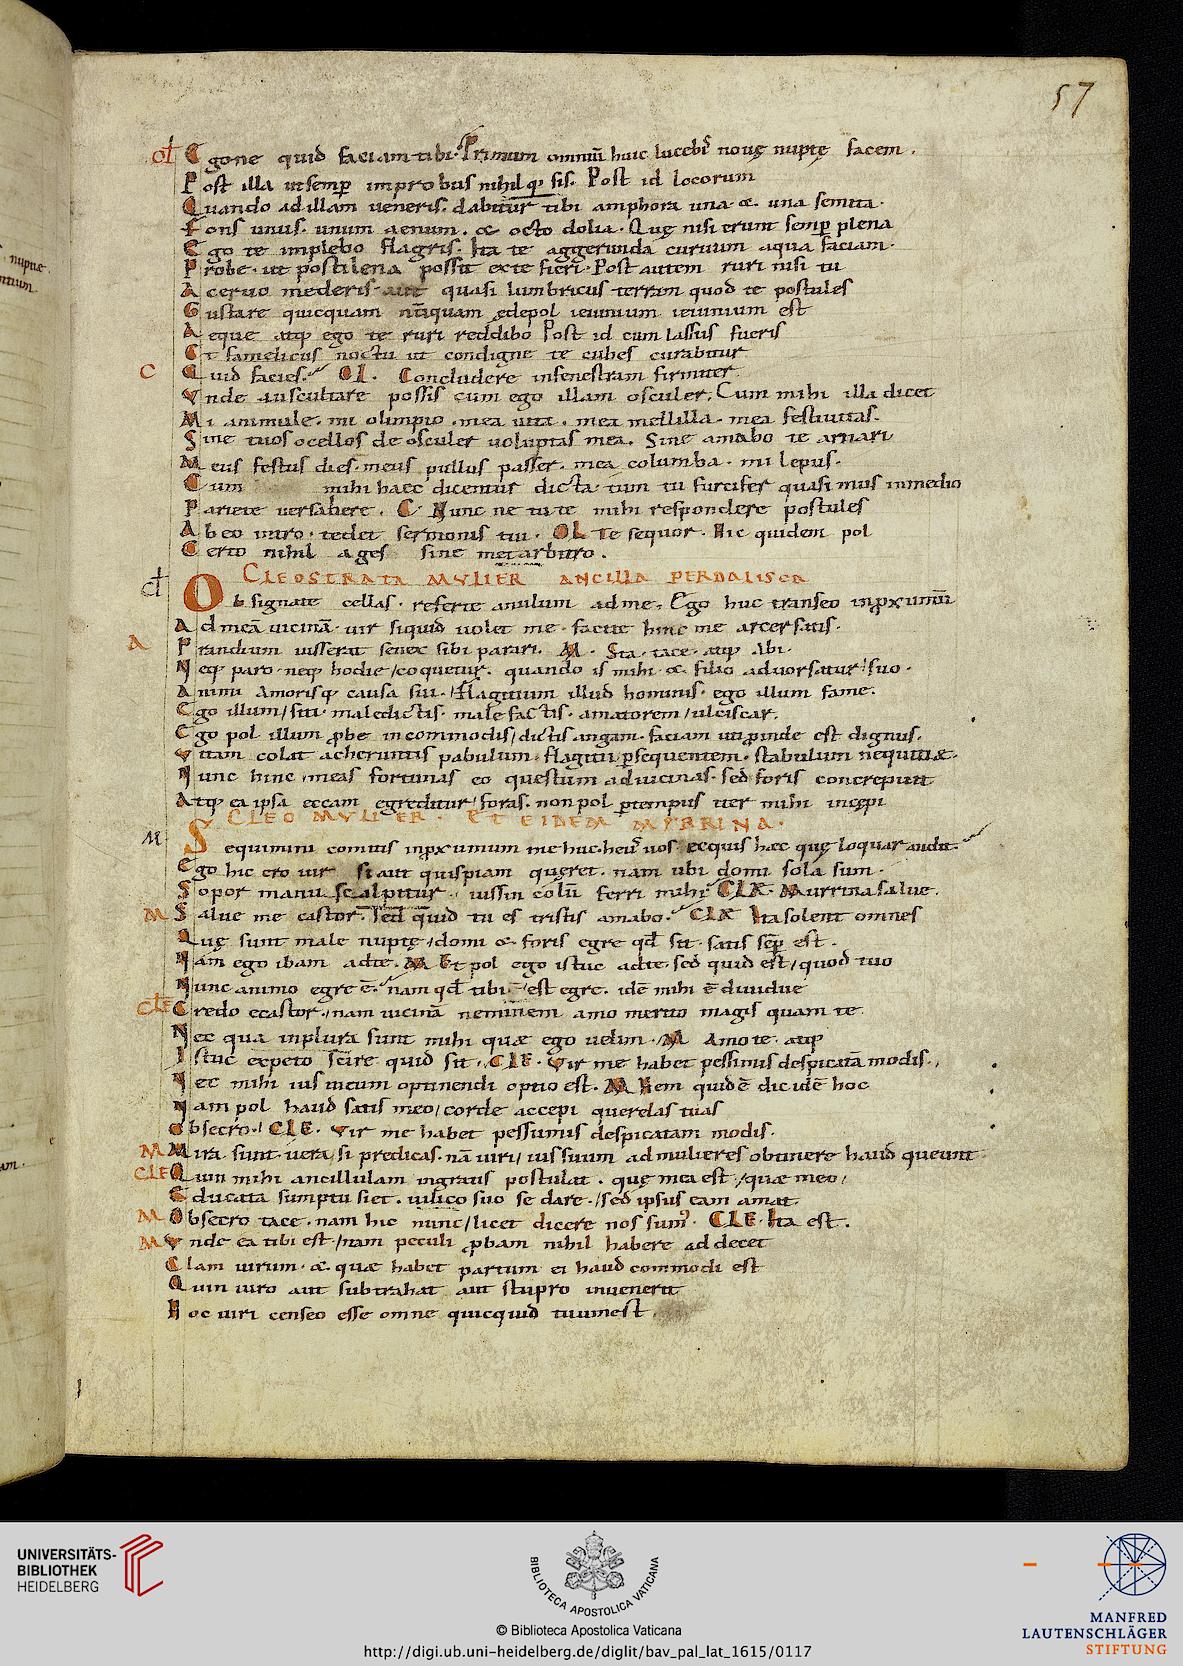 57
Ol Egone quid faciam tibi. Primum omniū huic lucebis novę nuptę facem.
Post illa ut semper improbus nihilq; sis. Post id locorum
Quando ad illam veneris. dabitur tibi amphora una &. una semita.
Fons unus. unum aenum. & octo dolia. Quę nisi erunt semp plena
Ego te implebo flagris. Ita te aggerunda curuum aqua faciam.
Probe. ut postilena possit ex te fieri. Post autem ruri nisi tu
Aceruo mederis aut quasi lumbricus terram quod te postules
Gustare quicquam edepol ieiunium ieiunium est
Aeque atq; ego te ruri reddibo Post id cum lassus fueris
Et famelicus noctu ut condigne te cubes curabitur
C Quid facies. OL. Concludere in fenestram firmiter
Vnde auscultare possis cum ego illam osculer. Cum mihi illa dicet
Mi animule. mi olimpio. mea vita. mea mellilla. mea festivitas.
Sine tuos ocellos de osculer voluptas mea. Sine amabo te amari
Meus festus dies. meus pullus passer. mea columba. mi lepus.
Cum mihi haec dicentur dicta. tum tu furcifer quasi mus in medio
Pariete versabere. C Nunc ne tu te mihi respondere postules
Abeo intro. tedet sermonis tui. OL Te sequor. Hic quidem pol
Certo nihil ages sine me arbitro.
CLEOSTRATA MVLIER ANCILLA PERDALISCA
Obsignate cellas. referte anulum ad me. Ego huc transeo in pxumū
Ad meā vicinā. vir siquid volet me. facite hinc me arcersatis.
A Prandium iusserat senex sibi parari. M. Sta. tace. atq; abi.
Neq; paro neq; hodie coquetur. quando is mihi & filio advorsatur suo.
Animi amorisq; causa sui. Flagitium illud hominis. ego illum fame.
Ego illum siti. maledictis. malefactis. amatorem ulciscar.
Ego pol illum pbe incommodis dictis angam. faciam uti pinde est dignus.
Vitam colat acheruntis pabulum. flagitii psequentem. stabulum nequitiae.
Nunc hinc meas fortunas eo questum ad vicinas. sed foris concrepuit
Atq; ea ipsa eccam egreditur foras. non pol p tempus iter mihi incępi
CLEO MVLIER. ET EIDEM MYRRINA.
M Sequimini comitis in pxumum me huc. heus vos ecquis haec quę loquar audit.
Ego hic ero vir si aut quispiam quęret. nam ubi domi sola sum.
Sopor manu scalpitur iussin colū ferri mihi CLE. Murrina salve.
M Salve me castor. Sed quid tu es tristis amabo. CLE Ita solent omnes
Quę sunt male nuptę domi & foris egre qd sit. satis semp est.
Nam ego ibam ad te. M Et pol ego istuc ad te. sed quid est quod tuo
Nunc animo egre ē. nam qd tibi est egre. idē mihi ē dividue
CLE Credo ecastor. nam vicinā neminem amo merito magis quam te
Nec qua in plura sunt mihi quae ego velim. M Amo te. atq;
Istuc expeto scire quid sit. CLE. Vir me habet pessimis despicatā modis.
Nec mihi ius meum optinendi optio est. M Hem quid ē dic idē hoc
Nam pol haud satis meo corde accepi querelas tuas
Obsecro. CLE. Vir me habet pessumis despicatam modis.
M Mira sunt vera si predicas. nā viri ius suum ad mulieres obtinere haud queunt
CLE Quin mihi ancillulam ingratis postulat. quę mea est quae meo
Educata sumptu siet. vilico suo se dare. sed ipsus eam amat.
M Obsecro tace. nam hic nunc licet dicere nos sum9. CLE. Ita est.
M Vnde ea tibi est. nam peculi pbam nihil habere addecet
Clam virum. & quae habet partum ei haud commodi est
Quin viro aut subtrahat aut stupro invenerit
Hoc viri censeo esse omne quicquid tuum est.
UNIVERSITÄTS-
BIBLIOTHEK
HEIDELBERG
BIBLIOTECA APOSTOLICA VATICANA
© Biblioteca Apostolica Vaticana
http://digi.ub.uni-heidelberg.de/diglit/bav_pal_lat_1615/0117
MANFRED
LAUTENSCHLÄGER
STIFTUNG